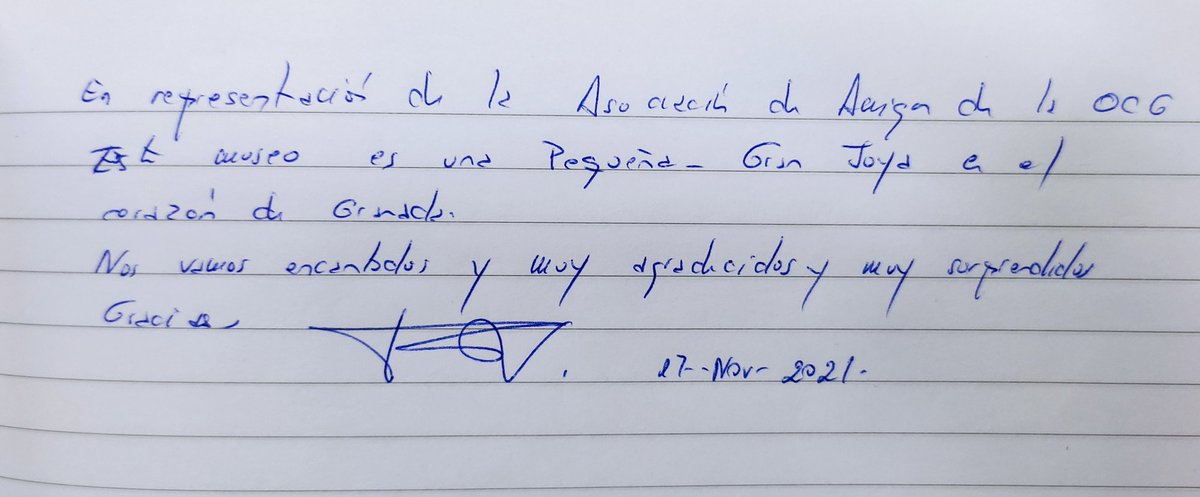 En representación de la Asociación de Amigos de la OCG
Este museo es una Pequeña-Gran Joya en el
corazón de Granada.
Nos vamos encantados y muy agradecidos y muy sorprendidos
Gracias
17-Nov-2021.